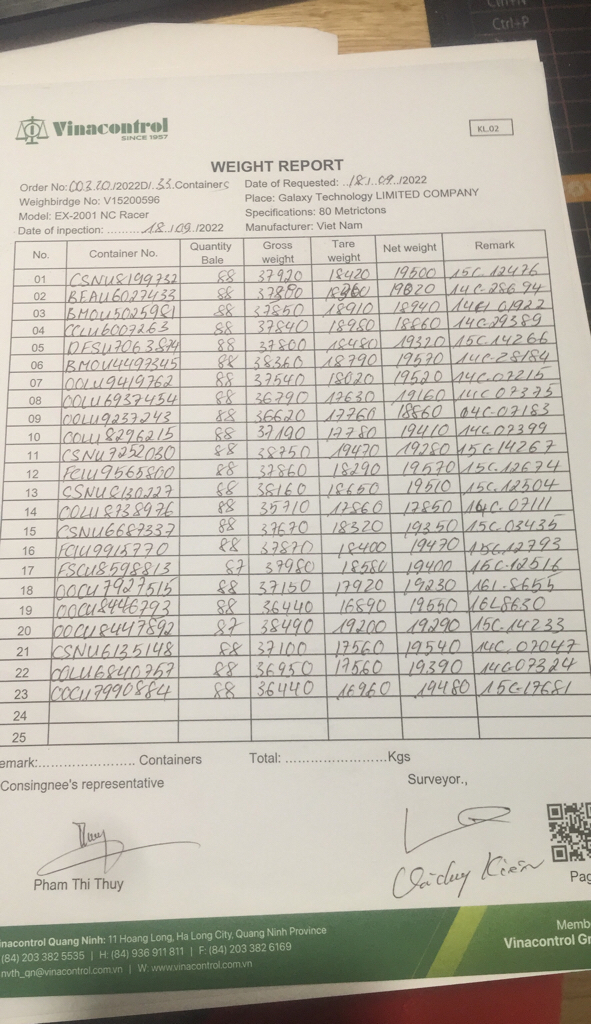 Ctrl+N
Ctrl+P
Vinacontrol
SINCE 1957
KL.02
WEIGHT REPORT
Order No: 00320/2022D/.33.Containers Date of Requested: ../18../..09../2022
Weighbirdge No: V15200596 Place: Galaxy Technology LIMITED COMPANY
Model: EX-2001 NC Racer Specifications: 80 Metrictons
Date of inpection: ..........18./09./2022 Manufacturer: Viet Nam
No. Container No. Quantity Bale Gross weight Tare weight Net weight Remark
01 CSNU8199732 88 37920 18420 19500 15C.12476
02 BEAU6027433 88 19020 14C.28694
03 BMOU5025981 88 37850 18910 18940 01922
04 CCLU6007263 88 37840 18980 18860 14C-29389
05 DFSU7063874 88 37800 18480 19320 15C.14266
06 BMOU4497345 88 38360 18790 19570 14C-28184
07 OOLU9419762 88 37540 18020 19520 14C.07215
08 OOLU6937454 88 36790 17630 19160 14C 07375
09 OOLU9237243 88 36620 17760 18860 14C-07183
10 OOLU8296215 88 37190 17780 19410 14C.07399
11 CSNU7252030 88 38750 19470 19280 15C-14267
12 FCIU9565800 88 37860 18290 19570 15C.12674
13 CSNU8130227 88 38160 18650 19510 15C.12504
14 OOLU8738976 88 35710 17860 17850 14C.07111
15 CSNU6687337 88 37670 18320 19350 15C.03435
16 FCIU9915770 88 37870 18400 19470 15C.12793
17 FSCU8598813 87 37980 18580 19400 15C.12516
18 OOCU7927515 88 37150 17920 19230 16L.8655
19 OOCU8446293 88 36440 16890 19550 16L8630
20 OOCU8447892 87 38490 19200 19290 15C.14233
21 CSNU6135148 88 37100 17560 19540 14C.07047
22 OOLU6840757 88 36950 17560 19390 14C07324
23 OOCU7990884 88 36440 16960 19480 15C-17681
24
25
emark:........................ Containers Total: ..........................Kgs
Consingnee's representative Surveyor.,
Thuy
Pham Thi Thuy
Kiên
Pag
inacontrol Quang Ninh: 11 Hoang Long, Ha Long City, Quang Ninh Province
(84) 203 382 5535 | H: (84) 936 911 811 | F: (84) 203 382 6169
nvth_qn@vinacontrol.com.vn | W: www.vinacontrol.com.vn
Memb
Vinacontrol Gr